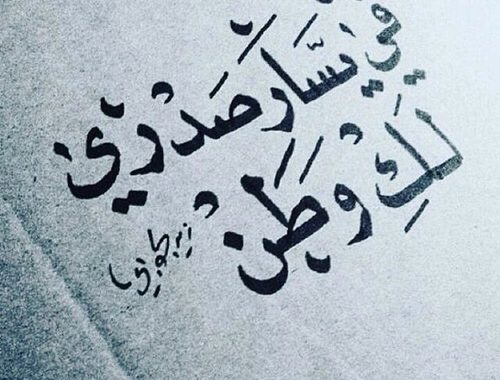 في يسار صدري
لكِ وطن